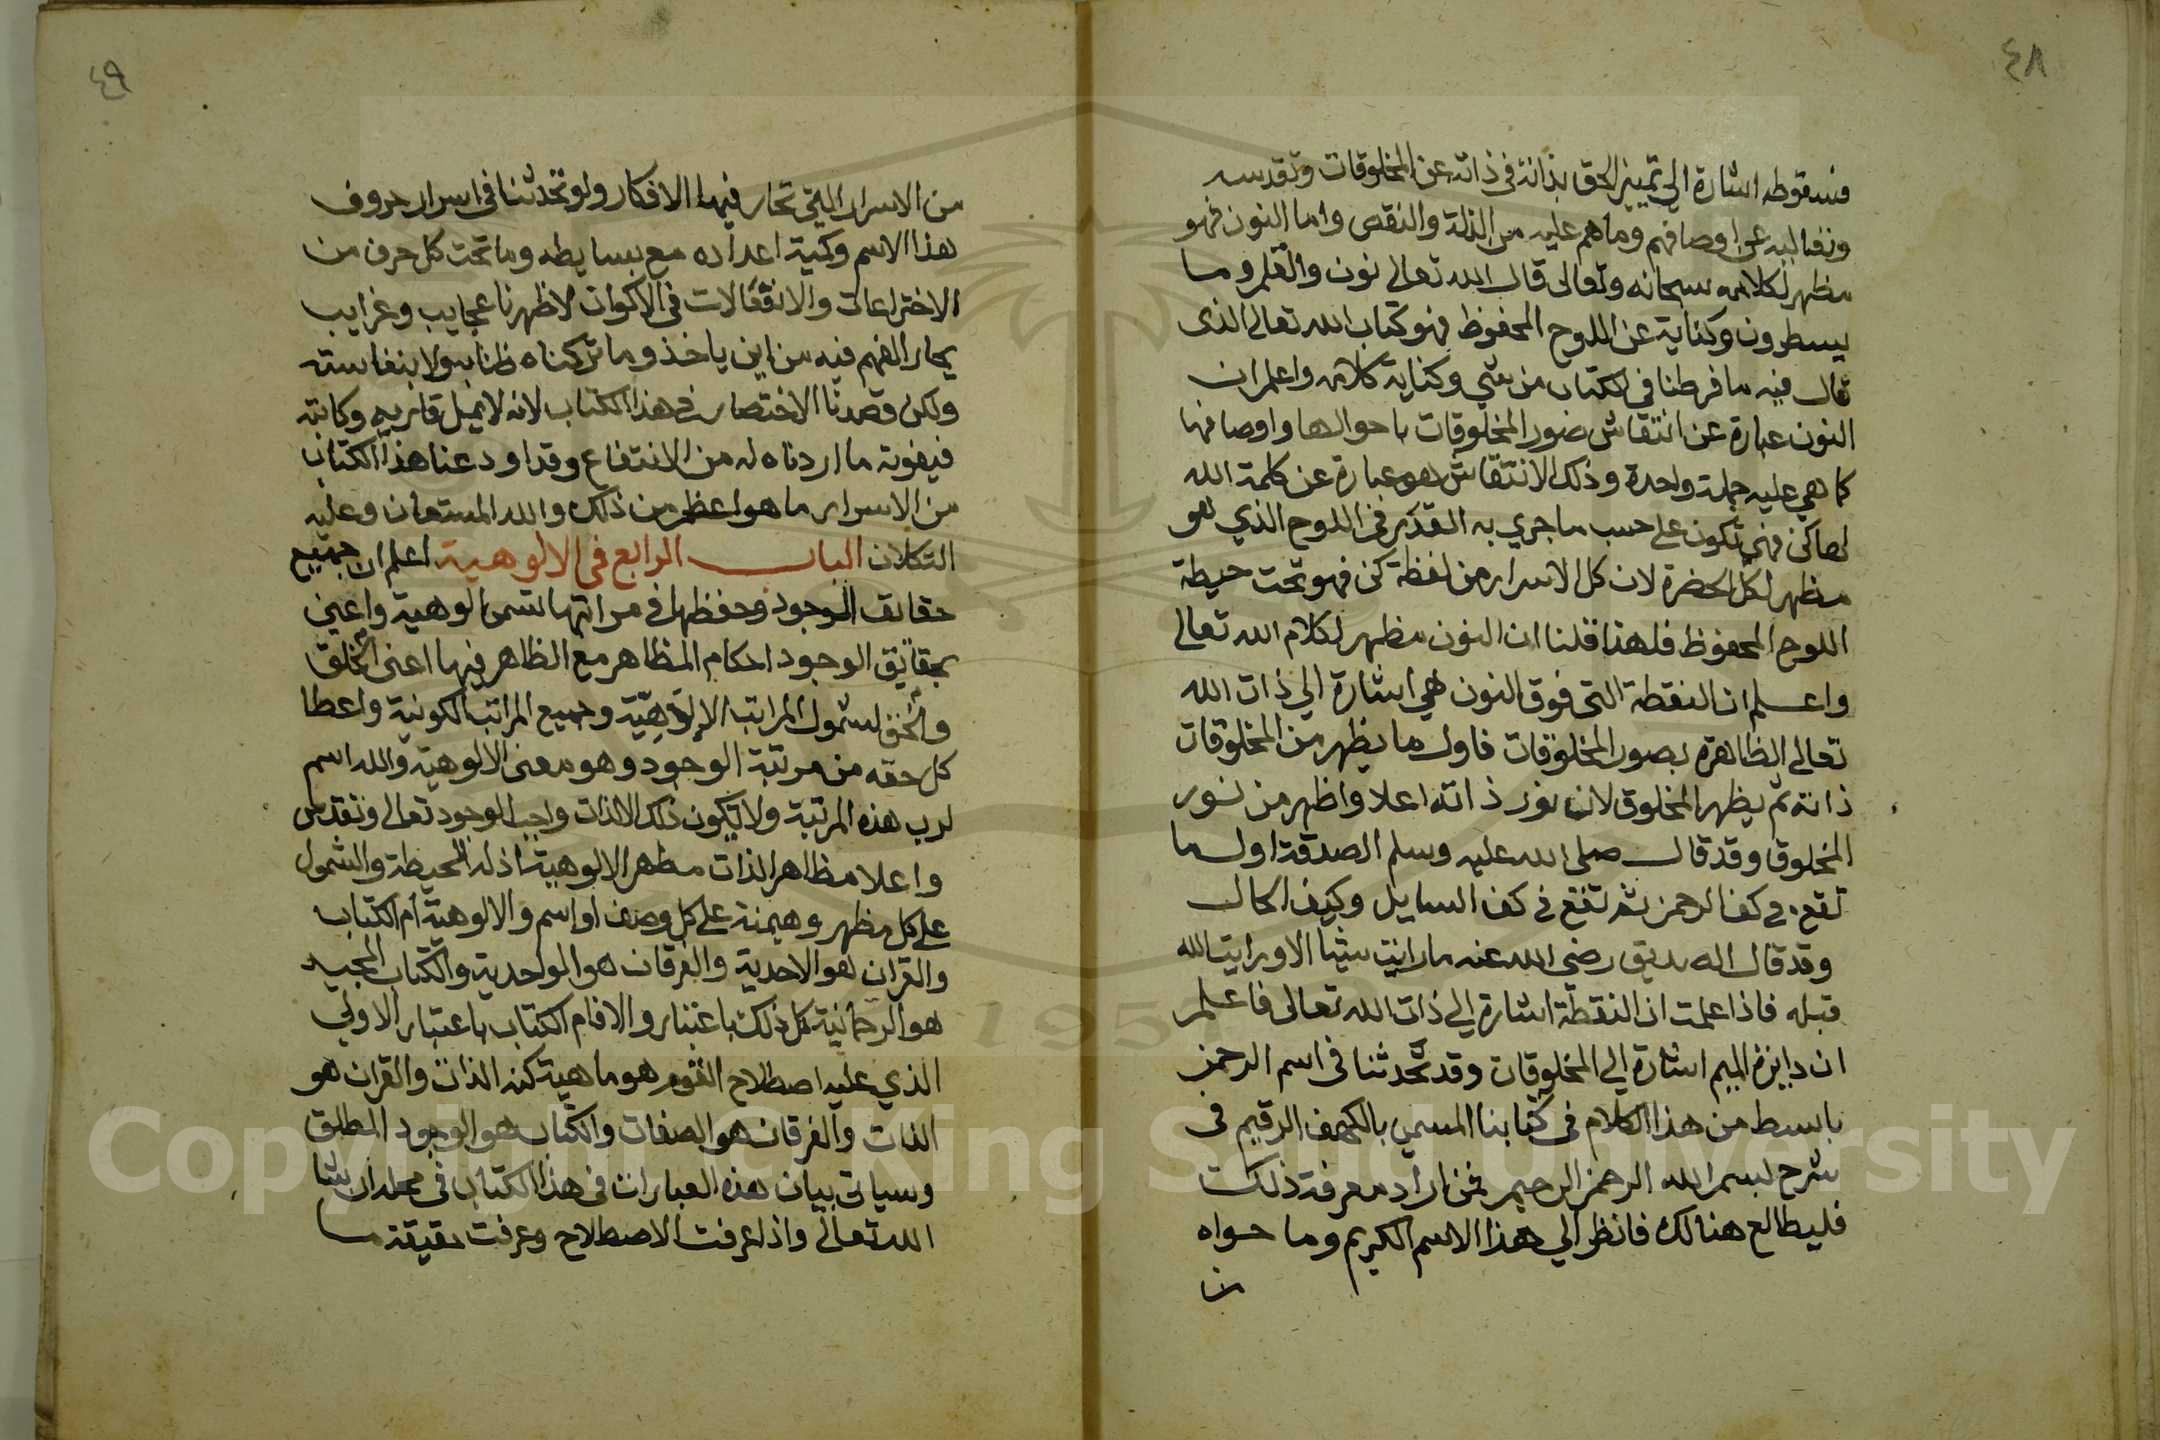 ٤٨
فسقوطه اشارة الي تميز الحق بذاته في ذاته عن المخلوقات وتقدسه
وتعاليه عن اوصافهم وما هم عليه من الذلة والنقص واما النون فهو
مظهر لكلامه سبحانه وتعالى قال الله تعالى نون والقلم وما
يسطرون وكناية عن اللوح المحفوظ فهو كتاب الله تعالى الذى
قال فيه ما فرطنا في الكتاب من شي وكناية كلامه واعلم ان
النون عبارة عن انتقاش صور المخلوقات باحوالها واوصافها
كما هي عليه جملة واحدة وذلك الانتقاش هو عبارة عن كلمة الله
لها كن فهي تكون على حسب ما جري به القلم في اللوح الذي هو
مظهر لكل الحضرة لان كل الاسرار من لفظة كن فهو تحت حيطة
اللوح المحفوظ فلهذا قلنا ان النون مظهر لكلام الله تعالى
واعلم ان النقطة التي فوق النون هي اشارة الي ذات الله
تعالى الظاهرة بصور المخلوقات فاول ما يظهر من المخلوقات
ذاته ثم يظهر المخلوق لان نور ذاته اعلا واظهر من نور
المخلوق وقد قال صلى الله عليه وسلم الصدقة اول ما
تقع في كف الرحمن ثم تقع في كف السايل وكيف الحال
وقد قال الصديق رضي الله عنه ما رايت شيا الا ورايت الله
قبله فاذا علمت ان النقطة اشارة الي ذات الله تعالى فاعلم
ان دايرة الميم اشارة الي المخلوقات وقد تحدثنا في اسم الرحمن
بابسط من هذا الكلام في كتابنا المسمي بالكهف الرقيم في
شرح بسم الله الرحمن الرحيم فمن اراد معرفة ذلك
فليطالع هنالك فانظر الي هذا الاسم الكريم وما حواه
٤٩
من الاسرار التي تحار فيها الافكار ولو تحدثنا في اسرار حروف
هذا الاسم وكمية اعداده مع بسايطه وما تحت كل حرف من
الاختراعات والانفعالات في الاكوان لاظهرنا عجايب وغرايب
يحار الفهم فيه من اين ياخذ وما تركناه ولا بنفاسته
ولكن قصدنا الاختصار في هذا الكتاب لانه لا يمل قاريه وكاتبه
فيفوته ما اردناه له من الانتفاع وقد اودعنا هذا الكتاب
من الاسرار ما هو اعظم من ذلك والله المستعان وعليه
التكلان الباب الرابع في الالوهية اعلم ان جميع
حقايق الوجود وحفظها في مراتبها تسمى الوهية واعني
بحقايق الوجود احكام المظاهر مع الظاهر فيها اعني الخلق
والحق لشمول المراتب الالوهية وجميع المراتب الكونية واعطا
كل حقه من مرتبة الوجود وهو معنى الالوهية والله اسم
لرب هذه المرتبة ولا يكون ذلك الا لذات واجب الوجود تعالى وتقدس
واعلا مظاهر الذات مظهر الالوهية اذ له الحيطة والشمول
على كل مظهر وهيمنة على كل وصف او اسم والالوهية ام الكتاب
والقران هو الاحدية والفرقان هو الواحدية والكتاب المجيد
هو الرحمانية كل ذلك باعتبار والا فام الكتاب باعتبار الاولي
الذي عليه اصطلاح القوم هو ماهية كنه الذات والقران هو
الذات والفرقان هو الصفات والكتاب هو الوجود المطلق
وسياتي بيان هذه العبارات في هذا الكتاب في محله ان شا
الله تعالى واذا عرفت الاصطلاح وعرفت حقيقة ما
Copyright © King Saud University
1957